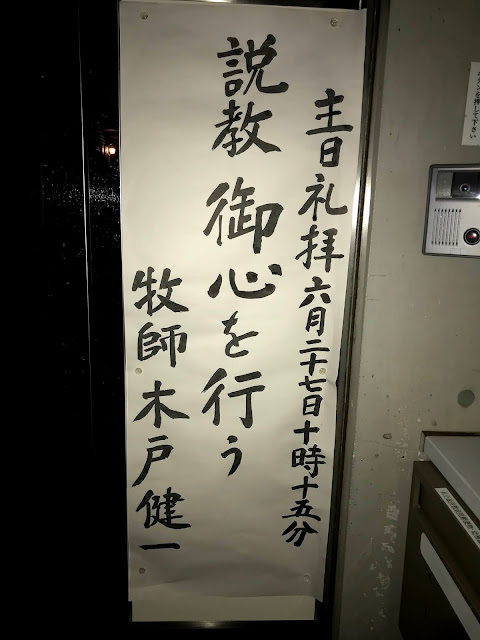 主日礼拝六月二十七日十時十五分
説教 御心を行う
牧師 木戸健一